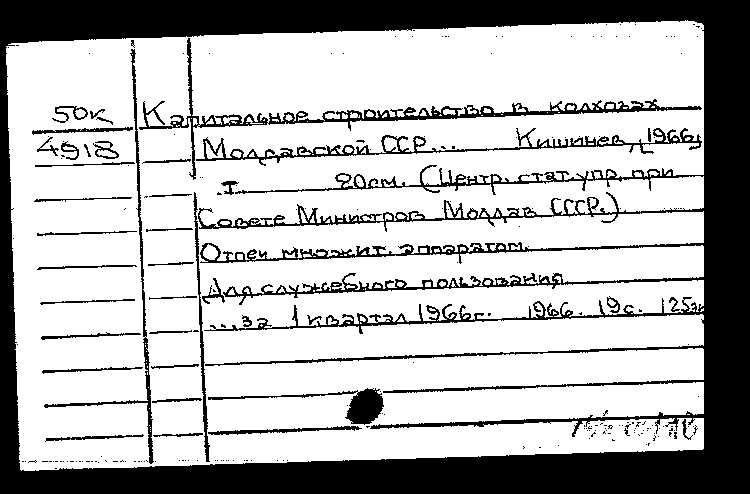 50к Капитальное строительство в колхозах
4918 Молдавской ССР... Кишинев, [1966,
.т. 20см. (Центр. стат. упр. при
Совете Министров Молдав СССР.)
Отпеч множит. аппаратом.
Для служебного пользования
...за 1 квартал 1966г. 1966. 19с. 125эк